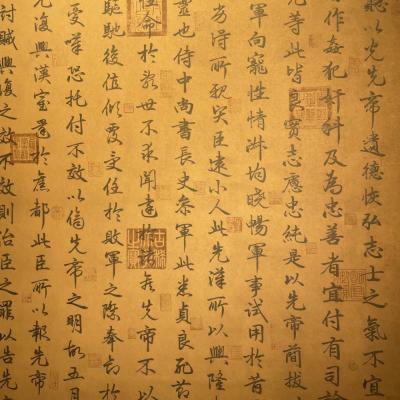 聽以光先帝遺德恢弘志士之氣不宜
作姦犯科及為忠善者宜付有司論
允等此皆良實志慮忠純是以先帝簡拔
軍向寵性情淑均曉暢軍事試用於昔
劣得所親賢臣遠小人此先漢所以興隆
靈也侍中尚書長史參軍此悉貞良死節
命於亂世不求聞達於諸侯先帝不以
驅馳後值傾覆受任於敗軍之際奉命於
憂嘆恐托付不效以傷先帝之明故五月
復興漢室還於舊都此臣所以報先帝
討賊興復之效不效則治臣之罪以告先